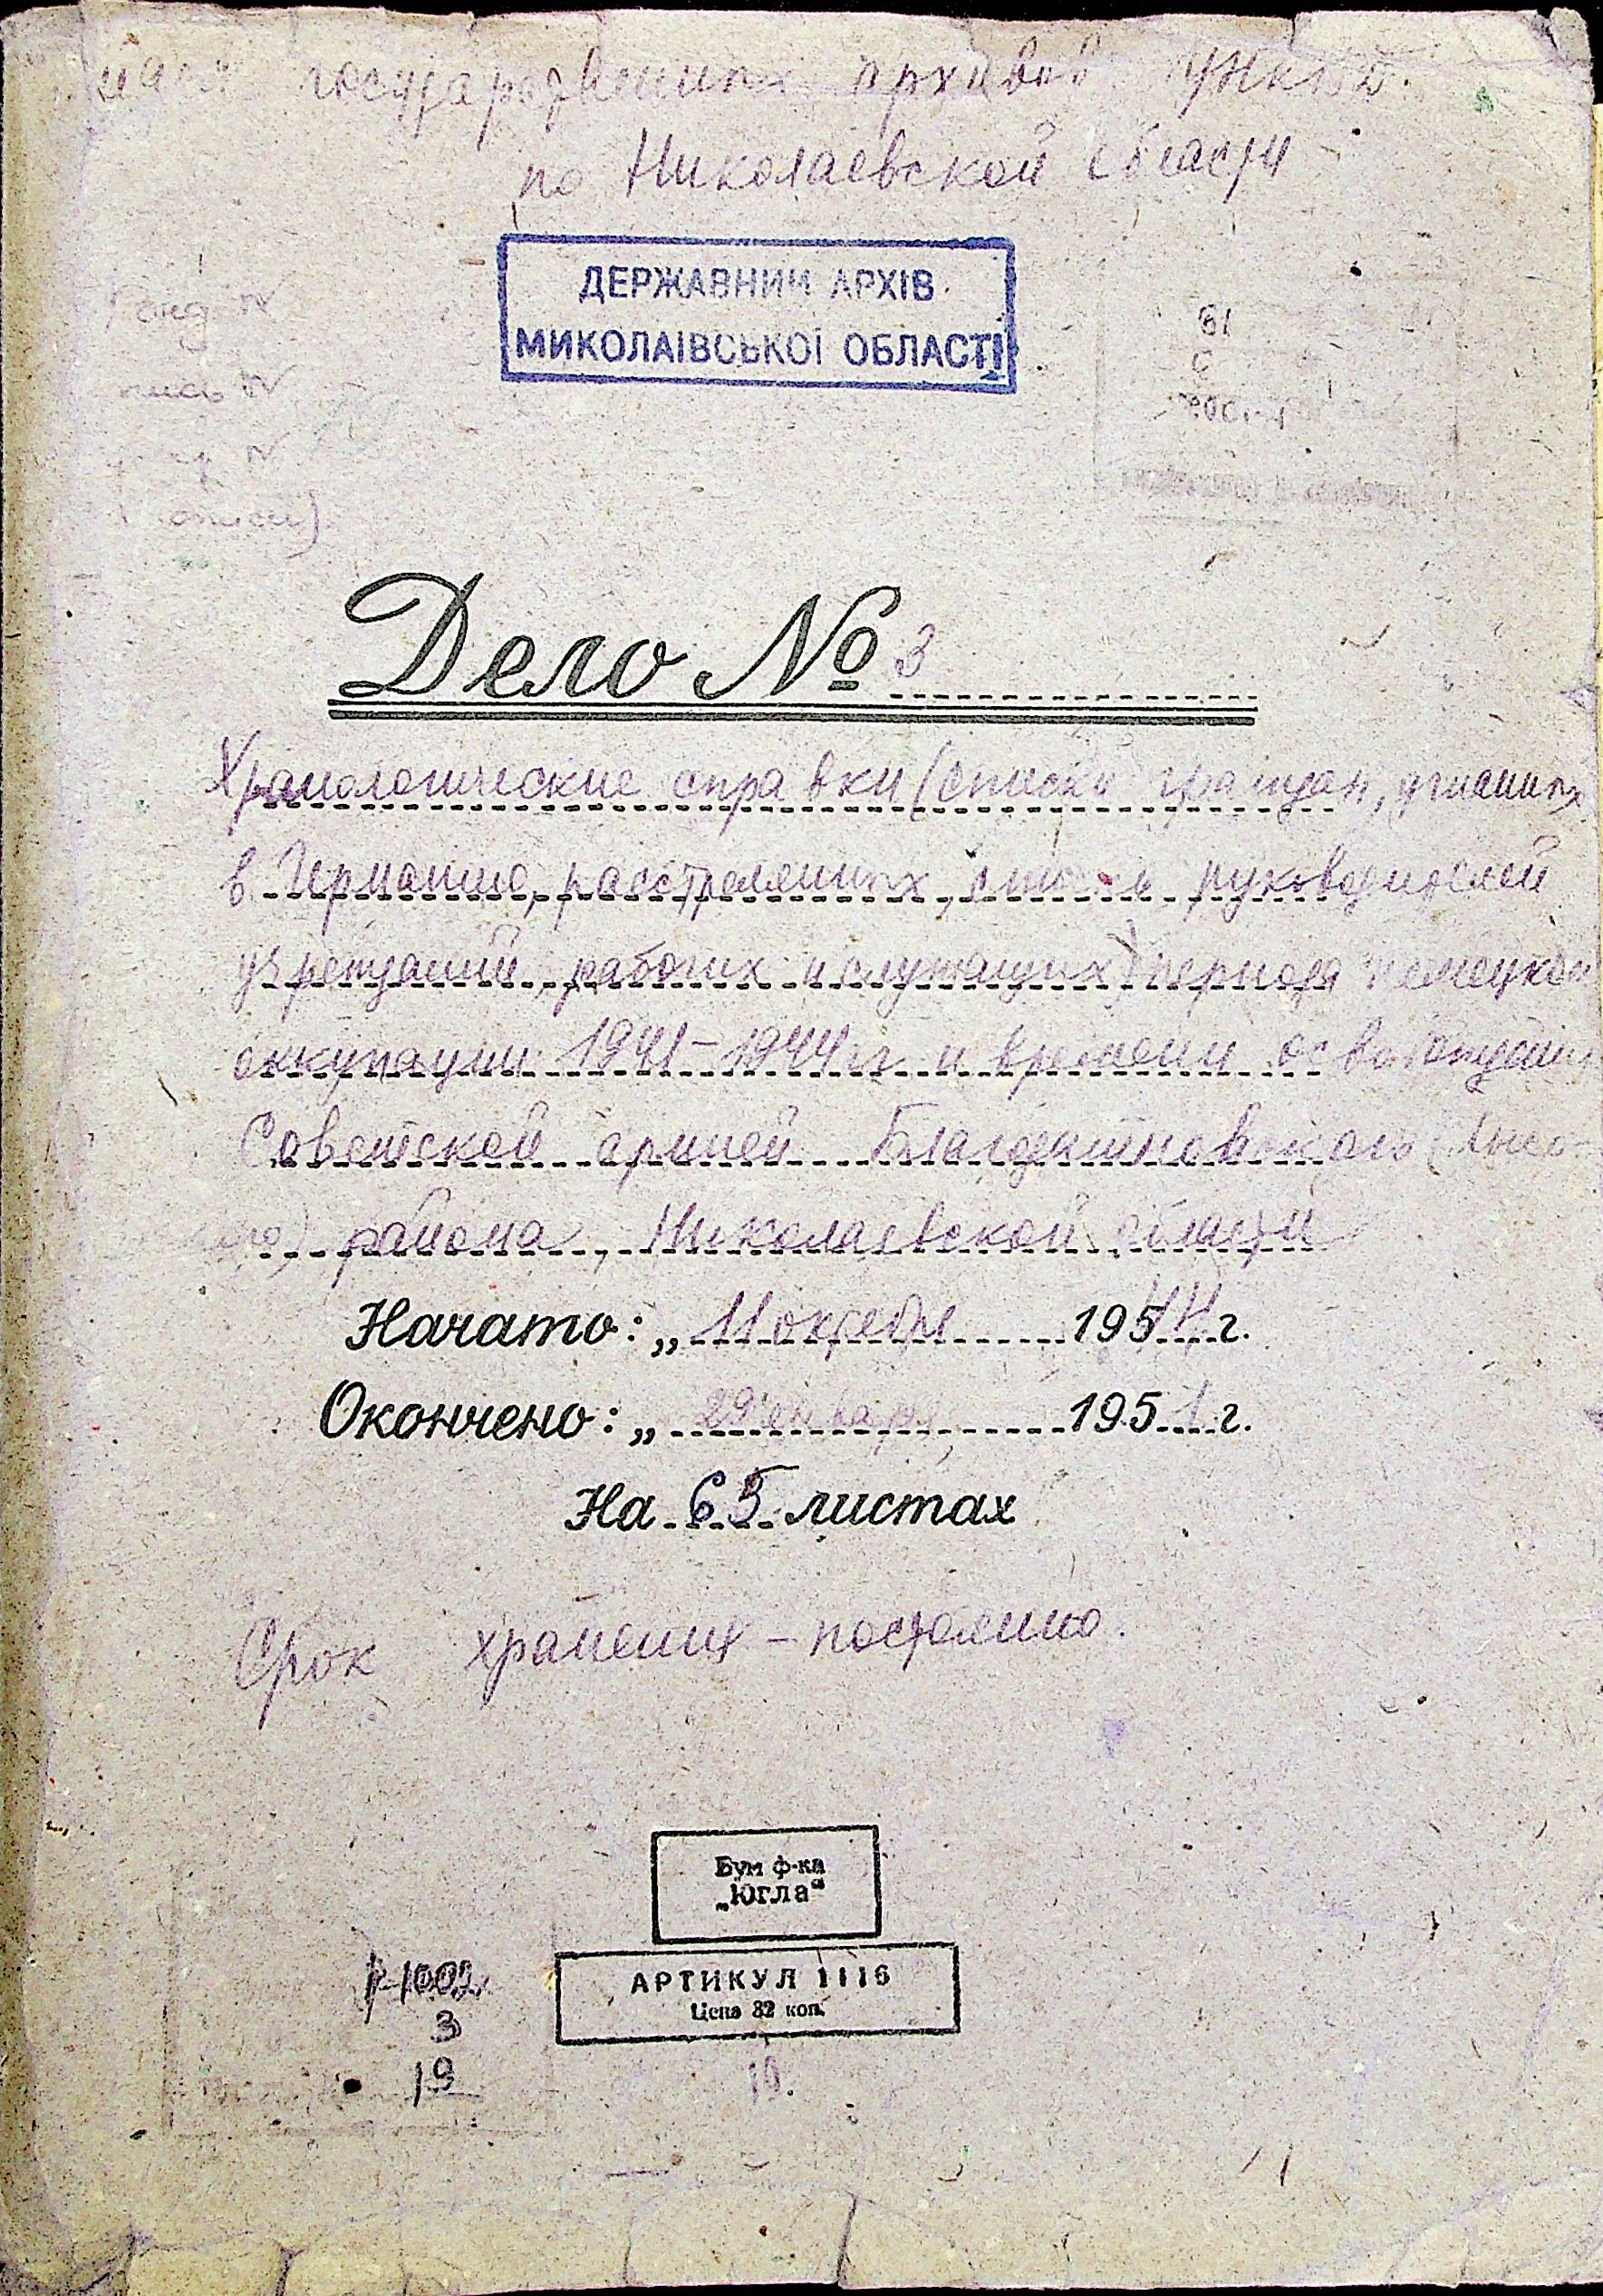 государственных архивов УНКВД
по Николаевской области
ДЕРЖАВНИЙ АРХІВ
МИКОЛАІВСЬКОІ ОБЛАСТІ
Дело № 3
Хронологические справки (списки граждан, угнанных
в Германию, расстрелянных, списки руководителей
учреждений, рабочих и служащих) периода немецкой
оккупации 1941-1944 гг и времени освобождения
Советской армией Благодатновского
района, Николаевской области
Начато: „ 11 октября 1944 г.
Окончено: „ 29 января 1951 г.
На 65 листах
Срок хранения – постоянно.
Бум ф-ка
„Югла“
АРТИКУЛ 1116
Цена 82 коп.
Р-1002
3
19
19.